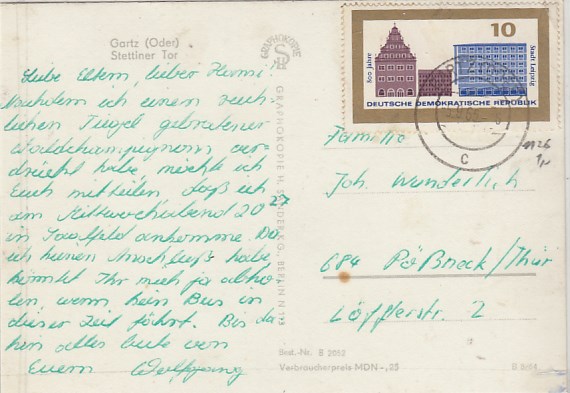 Gartz (Oder)
Stettiner Tor
Liebe Eltern, lieber Henni!
Nachdem ich einen reich-
lichen Tiegel gebratener
Waldchampignons ver-
drückt habe, möchte ich
Euch mitteilen, daß ich
am Mittwochabend 20 27
in Saalfeld ankomme. Da
ich keinen Anschluß habe
könntet Ihr mich ja abho-
len, wenn kein Bus in
dieser Zeit fährt. Bis da-
hin alles Gute von
Euern Wolfgang
GRAPHOKOPIE
GRAPHOKOPIE H. SANDER KG, BERLIN N 113
10
800 Jahre
Stadt Leipzig
DEUTSCHE DEMOKRATISCHE REPUBLIK
c
1126
Familie
Joh. Wunderlich
684 Pößneck/Thür
Löfflerstr. 2
Best.-Nr. B 2052
Verbraucherpreis MDN -,25